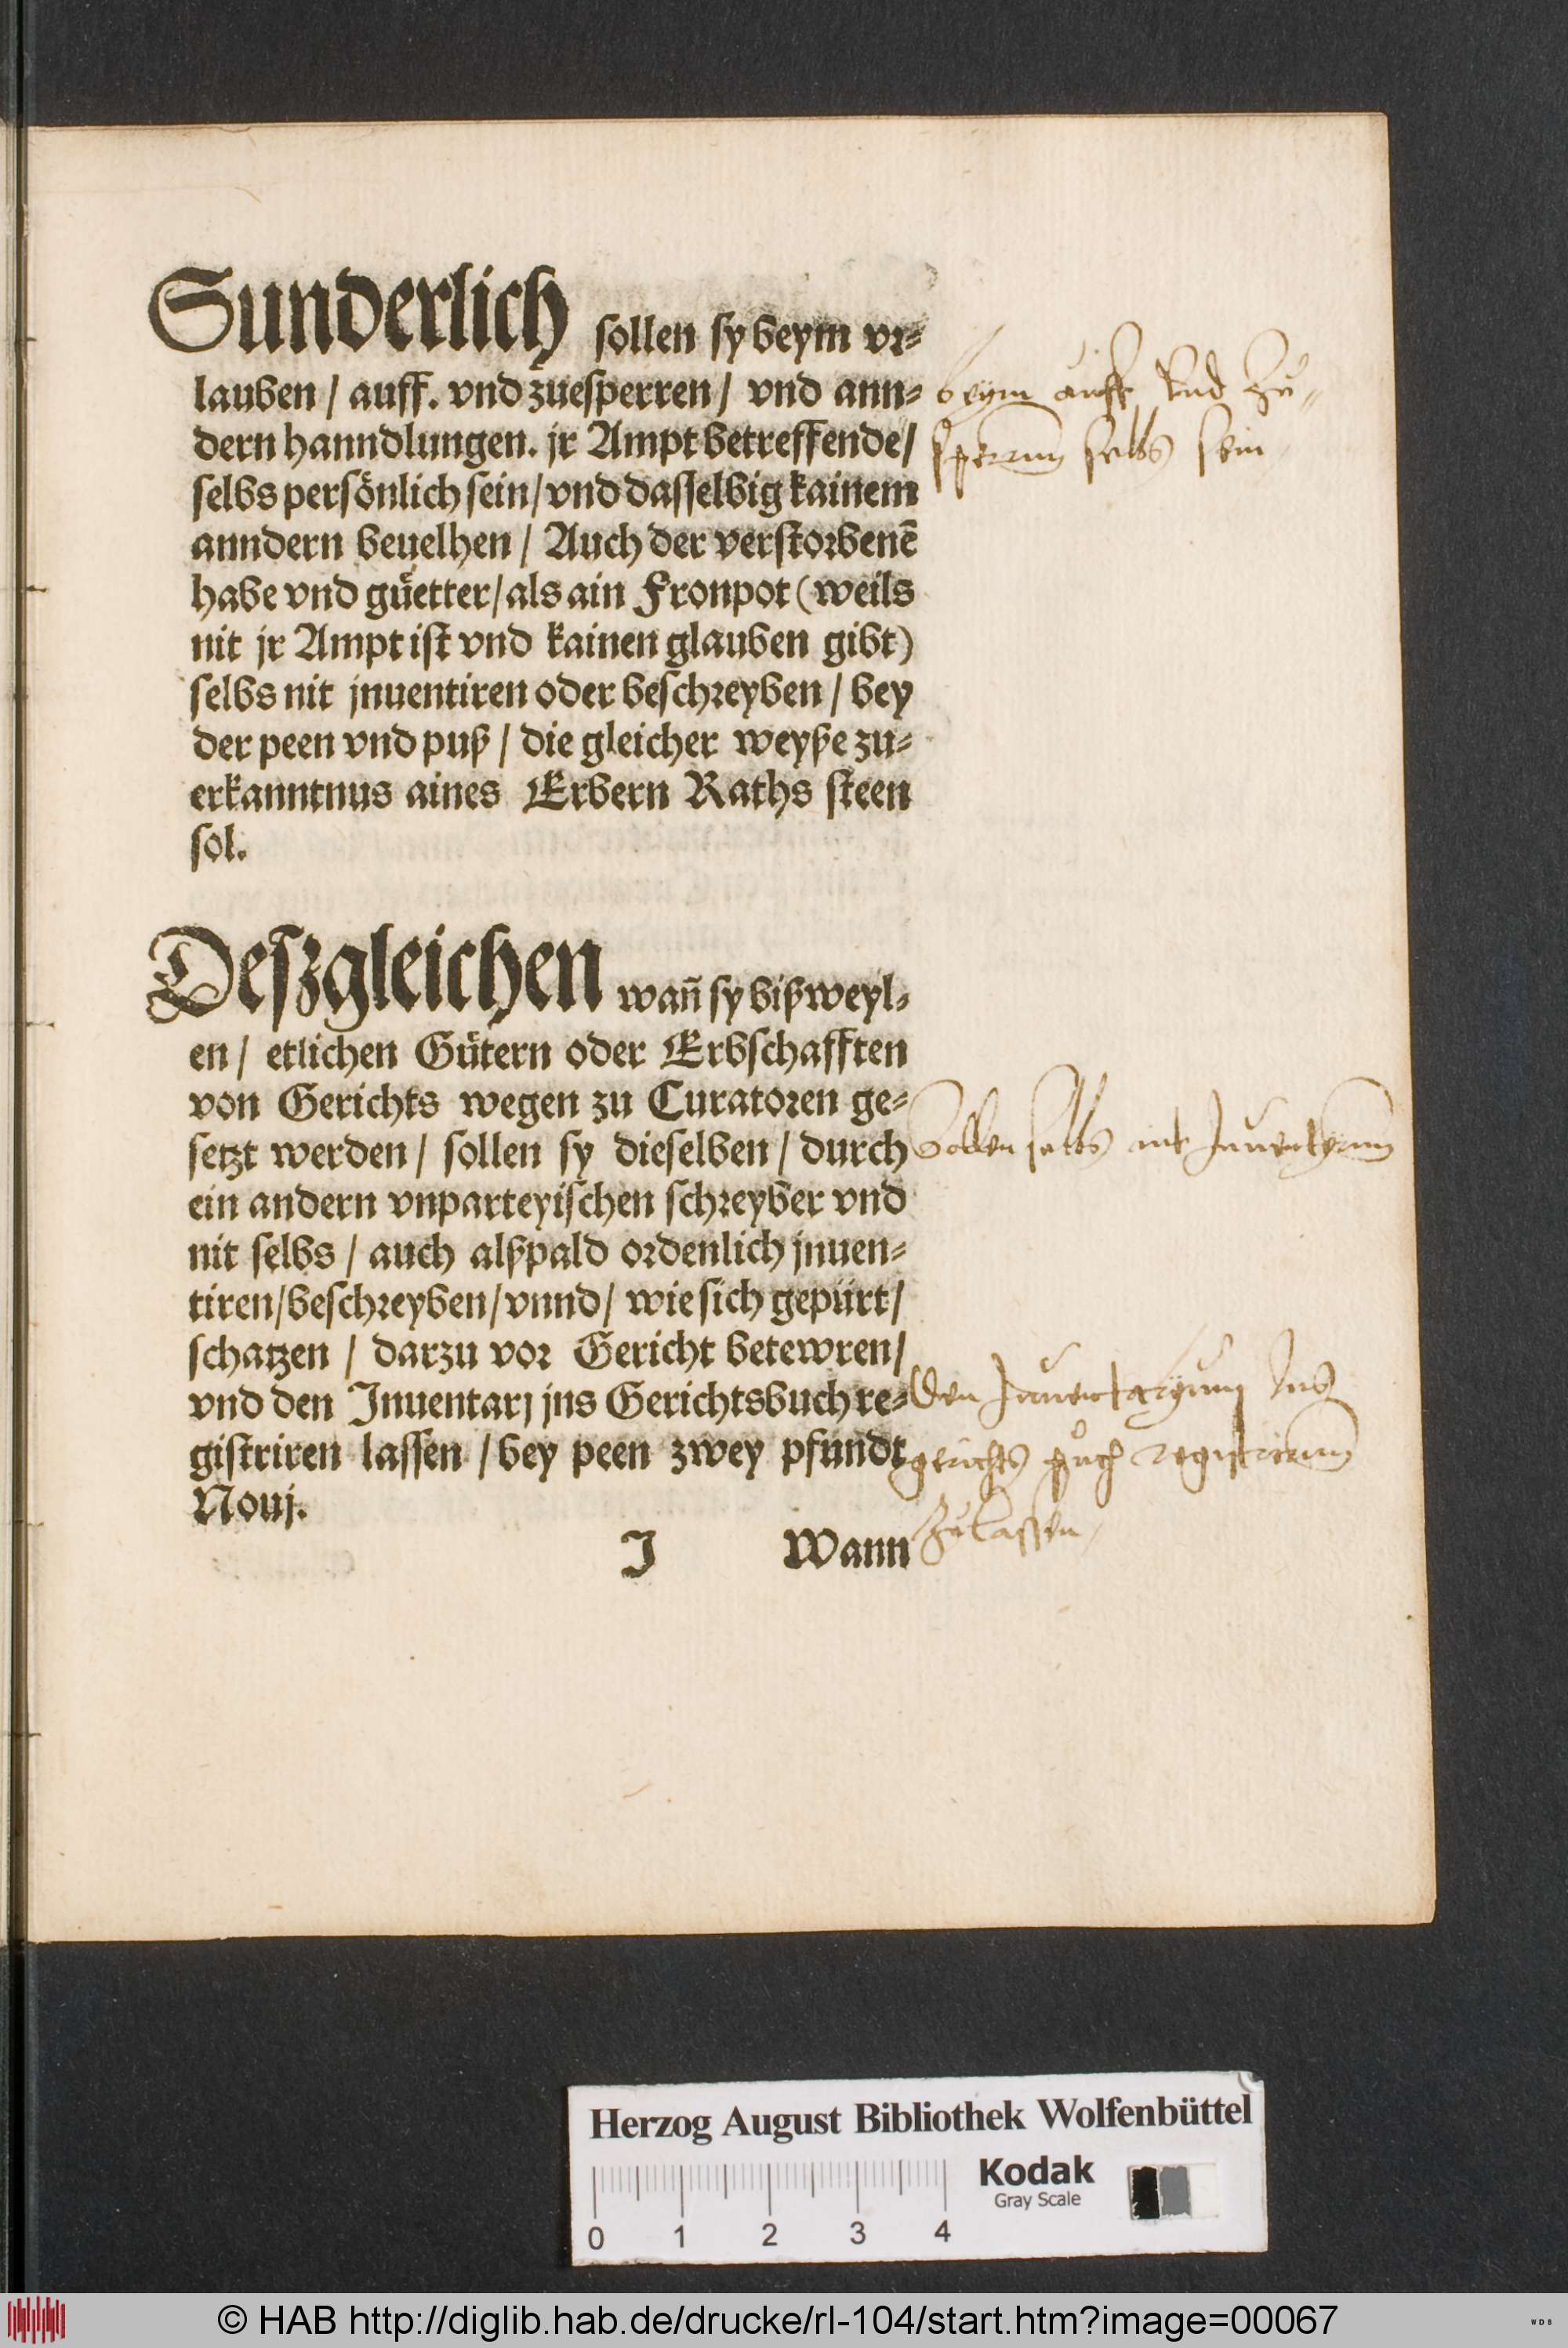 Sunderlich sollen sy beym vr⸗
lauben / auff. vnd zuesperren / vnd ann⸗
dern hanndlungen. jr Ampt betreffende /
selbs persönlich sein / vnd dasselbig kainem
anndern beuelhen / Auch der verstorbenē
habe vnd guͤetter / als ain Fronpot (weils
nit jr Ampt ist vnd kainen glauben gibt)
selbs nit jnuentiren oder beschreyben / bey
der peen vnd puß / die gleicher weyße zu⸗
erkanntnus aines Erbern Raths steen
sol.
beym auff vnd zu⸗
sperrung selbs sein
Deszgleichen wañ sy bißweyl⸗
en / etlichen Guͤtern oder Erbschafften
von Gerichts wegen zu Curatoren ge⸗
setzt werden / sollen sy dieselben / durch
ein andern vnparteyischen schreyber vnd
nit selbs / auch alßpald ordenlich jnuen⸗
tiren / beschreyben / vnnd / wie sich gepürt /
schatzen / darzu vor Gericht betewren /
vnd den Inuentarj jns Gerichtsbuch re⸗
gistriren lassen / bey peen zwey pfundt
Nouj.
Sollen selbs nit
Den Inuentaryum Ins
gerichts puch registrirnn
zu lassen
I Wann
Herzog August Bibliothek Wolfenbüttel
Kodak
Gray Scale
0 1 2 3 4
© HAB http://diglib.hab.de/drucke/rl-104/start.htm?image=00067
WDB